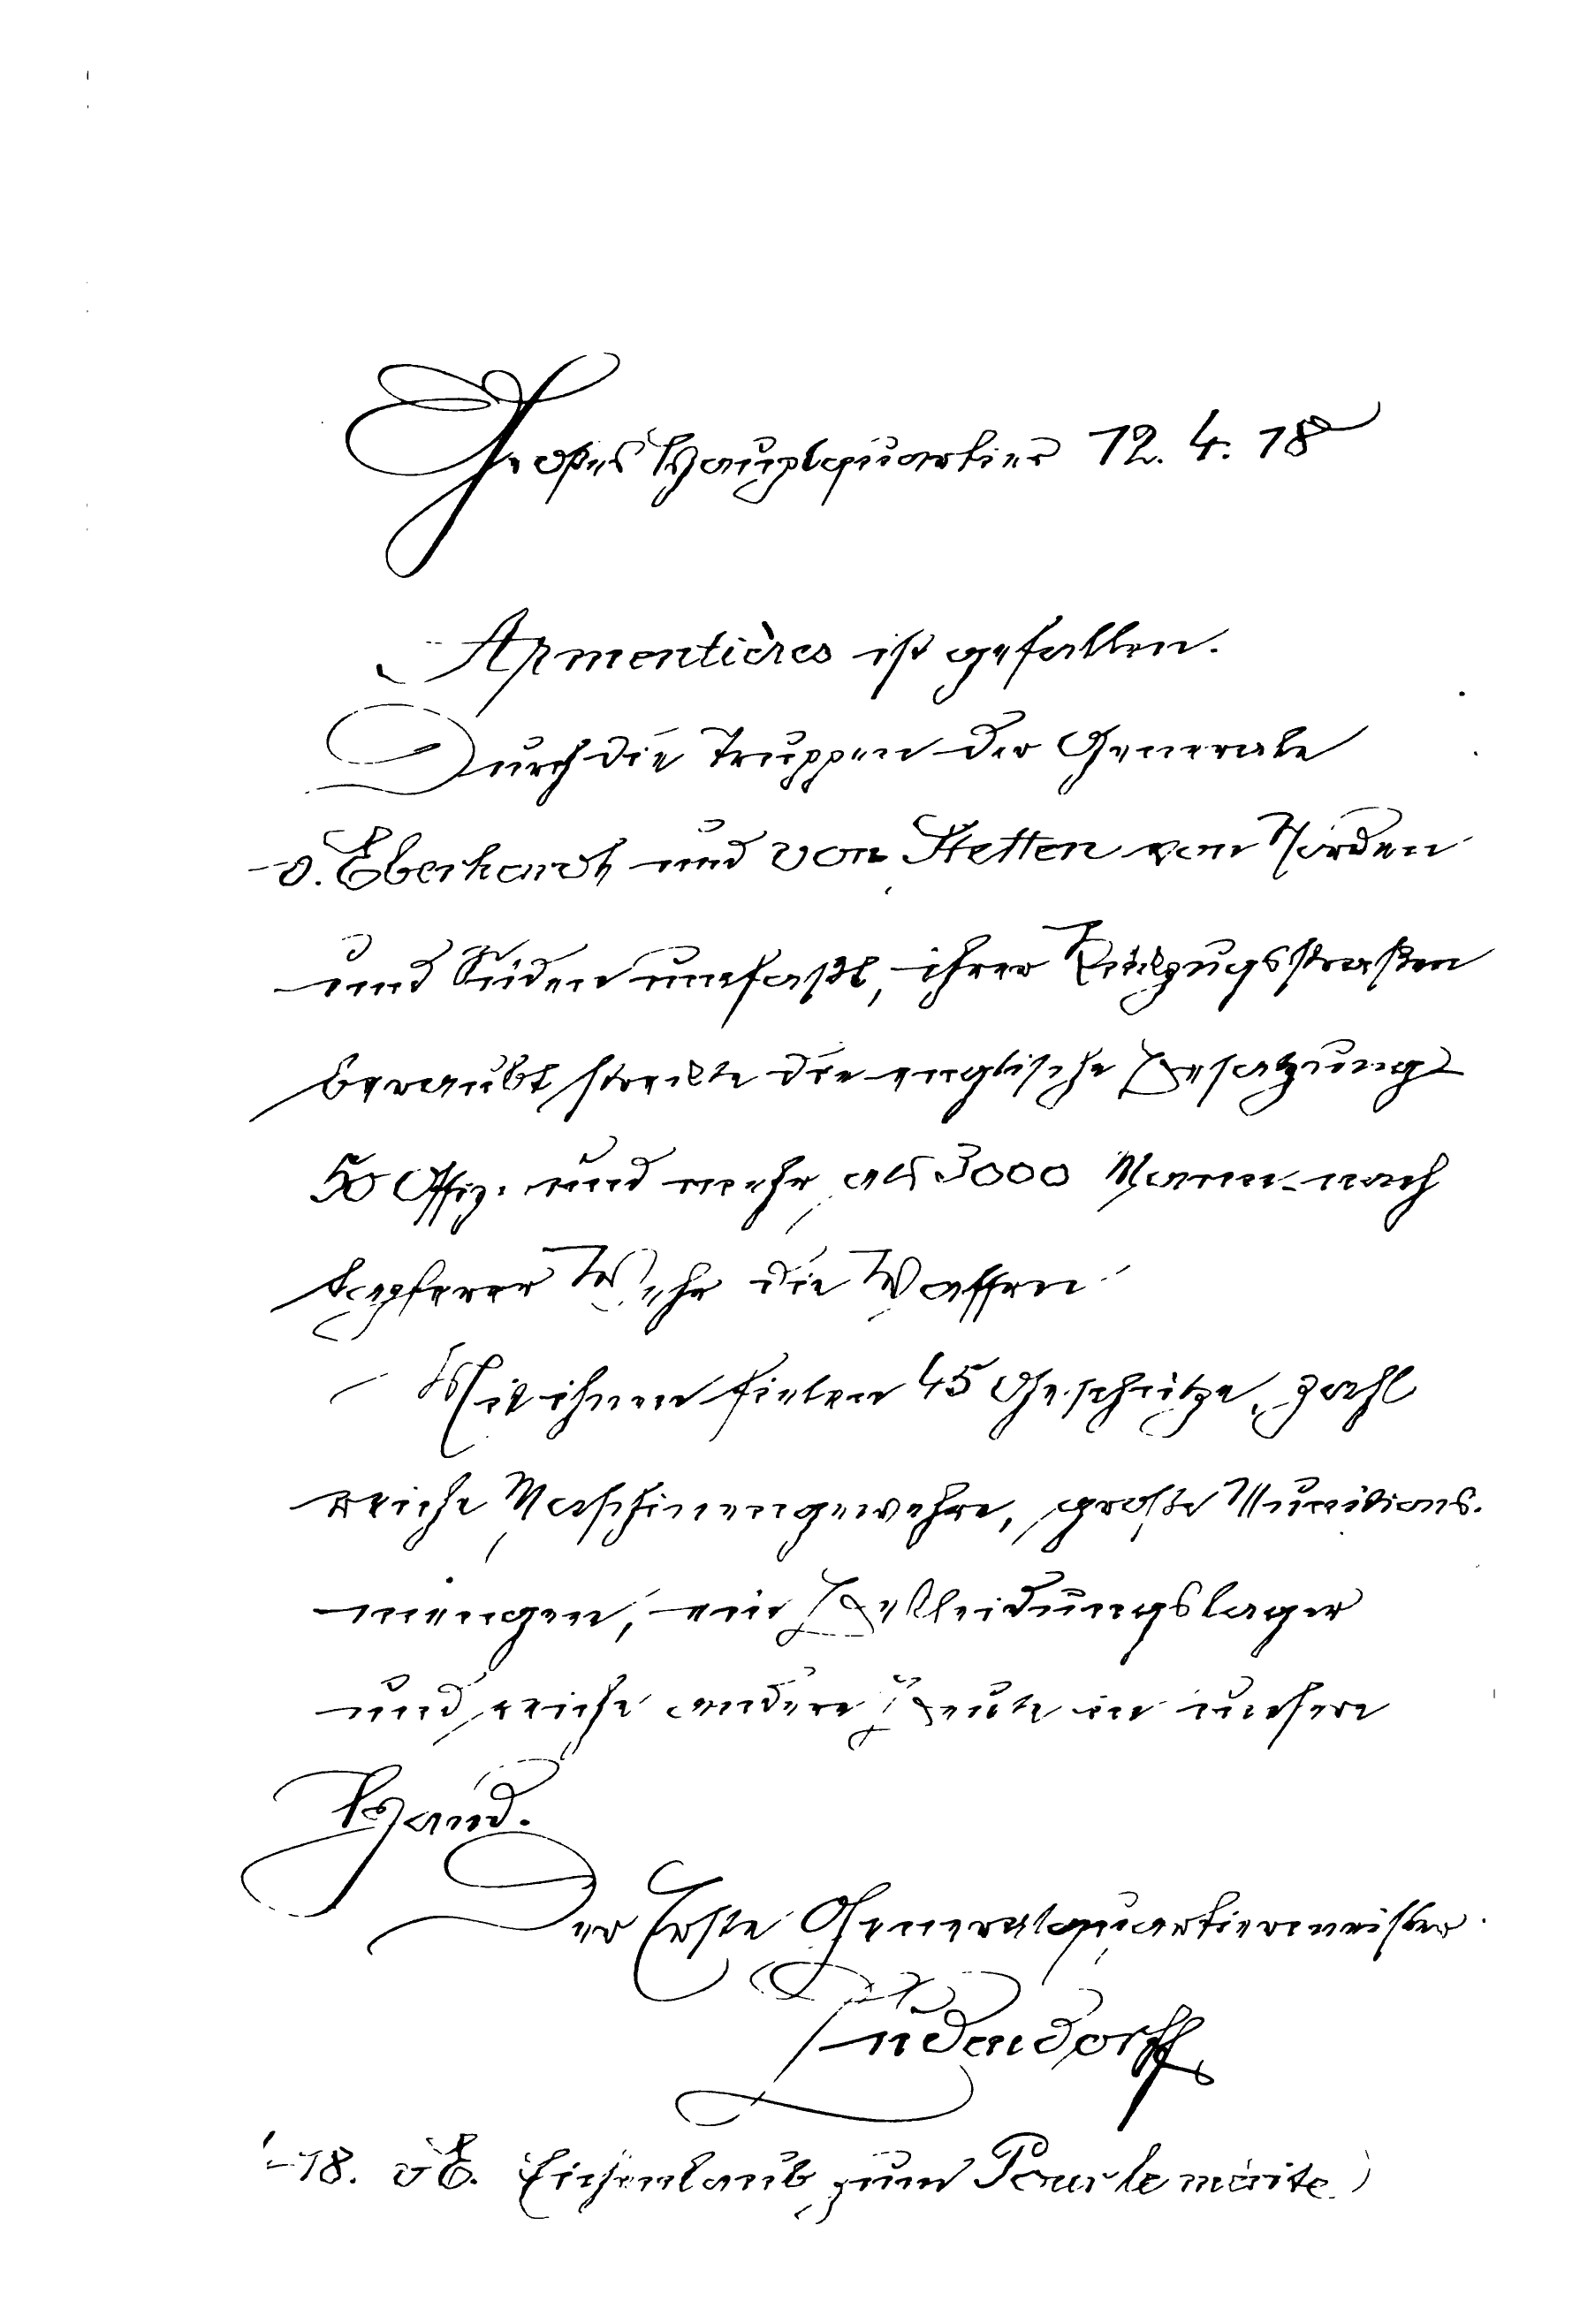 Großes Hauptquartier 12. 4. 18
Armentières ist gefallen.
Durch die Truppen der Generale
v. Eberhardt und von Stetten von Norden
und Süden umfaßt, ihrer Rückzugsstraßen
beraubt streckte die englische Besatzung
50 Offiz. und mehr als 3000 Mann nach
tapferer Wehr die Waffen
Mit ihnen fielen 45 Geschütze, zahl
reiche Maschinengewehre, große Munitions-
mengen, ein Bekleidungslager
und reiche andere Beute in unsere
Hand.
Der Erste Generalquartiermeister
Ludendorff
18. v E. Eichenlaub zum Pour le mérite)